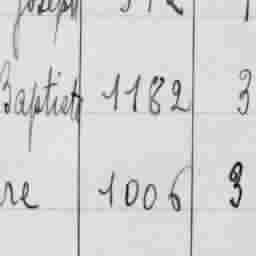 Joseph 312
Baptiste 1182 3
re 1006 3